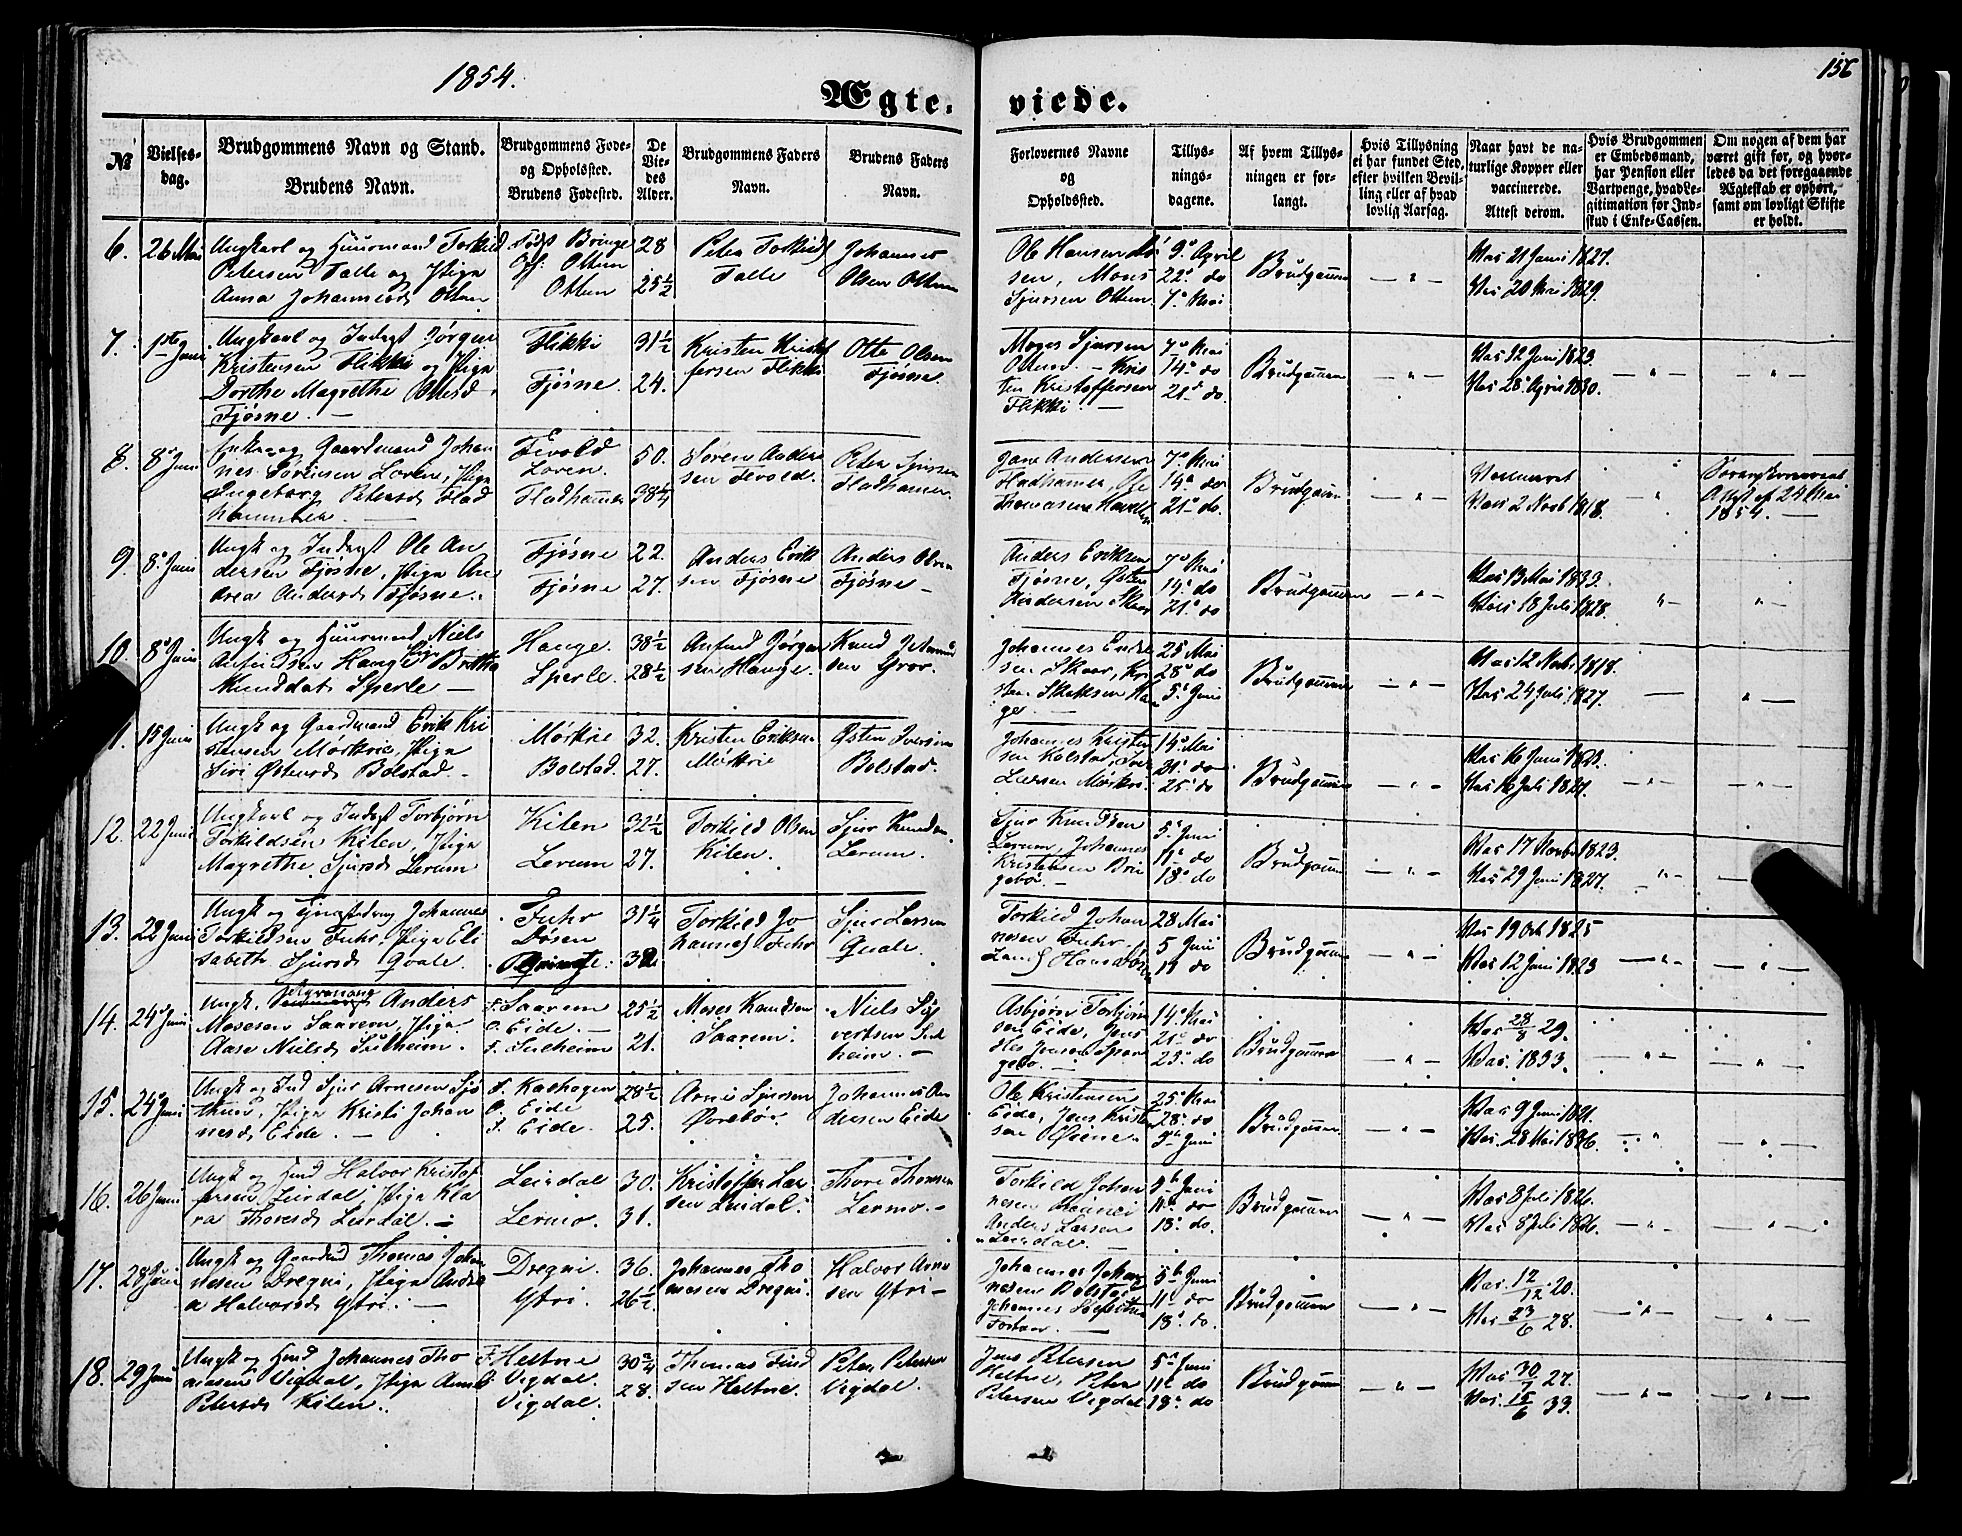 1854.
Ægte-
viede.
156
№
Vielses-
dag.
Brudgommens Navn og Stand.
Brudens Navn.
Brudgommens Føde-
og Opholsted.
Brudens Fødested.
De
Vie-
des
Alder.
Brudgommens Faders
Navn.
Brudens Faders
Navn.
Forlovernes Navne
og
Opholdsted.
Tillys-
nings-
dagene.
Af hvem Tillys-
ningen er for-
langt.
Hvis Tillysning
ei har fundet Sted,
efter hvilken Bevil-
ling eller af hvad
lovlig Aarsag.
Naar havt de na-
turlige Kopper eller
vaccinerede.
Attest derom.
Hvis Brudgommen
er Embedsmand,
har Pension eller
Vartpenge, hvad Le-
gitimation for Ind-
skud i Enke-Cassen.
Om nogen af dem har
været gift før, og hvor-
ledes da det foregaaende
Ægteskab er ophørt,
samt om lovligt Skifte
er holdt.
6.
26 Mai
Ungkarl og Huusmand Torkild
Petersen Talle og Pige
Anna Johannesd. Ottum
Født Bringe
Oph: Ottum
Ottum
28
25½
Peter Torkilds
Talle
Johannes
Olsen Ottum
Ole Hansen
sen, Mons
Sjursen Ottum
9de April
22de do
7de Mai
Brudgommen
Vac 21 Juni 1827.
Vac 20 Mai 1829.
7.
1ste Juni
Ungkarl og Inderst Jørgen
Kristensen Flikki og Pige
Dorthe Magrethe Ottesd.
Fjøsne. —
Flikki
Fjøsne
31½
24.
Kristen Kristof
fersen Flikki
Otte Olsen
Fjøsne.
Moses Sjursen
Ottum. — Kris
ten Kristoffersen
Flikki. —
7de Mai
14de do
21de do.
Brudgommen
Vac 12 Juni 1823.
Vac 28 April 1830.
8.
8de Juni
Enkem. og Gaardmand Johan
nes Sørensen Loven, Pige
Ingeborg Petersd. Flad
hammer. —
Fevold
Loven.
Fladhammer
50.
38¼
Søren Anders
sen Fevold.
Peter Sjursen
Fladhamer.
Jens Andersen
Fladhamer, Ole
Thomasen
7de Mai
14de do
21de do.
Brudgommen
Vac 2 Novb 1818.
Attest af 24 Mai
1854. —
9.
8de Juni
Ungk og Inderst Ole An
dersen Fjøsne, Pige An
drea Andersd. Fjøsne.
Fjøsne
Fjøsne
22.
27.
Anders Erik
sen Fjøsne
Anders Olsen
Fjøsne —
Anders Eriksen
Fjøsne, Østen
Andersen Skaar
7de Mai
14de do
21de do
Brudgommen
Vac 13 Mai 1833.
Vac 18 Juli 1828.
10.
8de Juni
Ungk og Huusmand Niels
Anfindsen Hauge Pige Brittha
Knudsdat. Sperle —
Hauge.
Sperle.
38½
28½
Anfind Jørgen
sen Hauge.
Knud
sen Gror.
Johannes Ends
sen Skaar, Kri
sten
ge.
25 Mai
28de do
5de Juni
Brudgommen
Vac 12 Novb 1818.
Vac 24 Juli 1827.
11.
15 Juni
Ungk og Gaardmand Erik Kri
stensen Mørkrie, Pige
Siri Østensd. Bolstad. —
Mørkrie
Bolstad.
32.
27.
Kristen Eriksen
Mørkrie
Østen Iversen
Bolstad.
Johannes Kristen
sen Kolstad,
Larsen Mørkri.
14de Mai
21de do
25de do
Brudgommen
Vac 16 Juni 1823.
Vac 16 Juli 1827.
12.
22 Juni
Ungkarl og Inderst Torbjørn
Torkildsen Kilen, Pige
Magrethe Sjursd. Lerum
Kilen
Lerum
32½
27.
Torkild Olsen
Kilen.
Sjur Knudsen
Lerum.
Sjur Knudsen
Lerum, Johannes
Kristensen Brin
gebø. —
5de Juni
11de do
18de do
Brudgommen
Vac 17 Novbr 1823.
Vac 29 Juni 1827.
13.
22 Juni
Ungk og Johannes
Torkildsen Fuhr, Pige Eli
sabeth Sjursd. Qvale.
Fuhr
Døsen
31¼
32
Torkild Jo
hannes Fuhr
Sjur Larsen
Qvale.
Torkild Johan
nesen Fuhr.
Lars Hans Døsen
28 Mai
5 Juni
11 do
Brudgommen
Vac 19 Oct 1825
Vac 12 Juni 1823
14.
24de Juni
Ungk. Anders
Mosesen Saarem, Pige
Aase Nielsd. Sulheim.
F. Saarem
O. Eide. —
F. Sulheim
25½
21.
Moses Knudsen
Saarem.
Niels Sy
vertsen Sul
heim. —
Asbjørn Torbjørn
sen Eide, Jens
14de Mai
21de do
25de do
Brudgommen
Vac 28/8 29.
Vac. 1833.
15.
24de Juni
Ungk og Ind Sjur Arnesen
Pige Kristi Johan
nesd. Eide. —
F. Kashagen
O. Eide
F. Eide.
28½
25.
Arne Sjursen
Øvrebø.
Johannes An
dersen Eide
Ole Kristensen
Eide, Jens Kristen
sen Øiene.
25 Mai
28de do
5te Juni
Brudgommen
Vac 9 Juni 1821.
Vac. 28 Mai 1836.
16.
26 Juni
Ungk og Hmd Halvor Kristof
fersen Leirdal, Pige Kla
ra Thoresd. Leirdal.
Leirdal
Lermo.
30.
31.
Kristoffer Lar
sen Leirdal.
Thore Thomsen
Lermo. —
Torkild Johan
nesen
Anders Larsen
Leirdal.
5te Juni
11te do
18de do.
Brudgommen
Vac 8 Juli 1826.
Vac 8 Juli 1826.
17.
28 Juni
Ungk og Gaardmd Thomas Johan
nesen Dregni, Pige Andre
a Halvorsd. Ytri. —
Dregni.
Ytri.
36.
26½
Johannes Tho
mesen Dregni.
Halvor Arne
sen Ytri —
Johannes Johan
nesen Bolstad
Johannes
5te Juni
11te do
18de do.
Brudgommen
Vac. 12/12 20.
Vac 23/6 28.
18.
29 Juni
Ungk og Hmd Johannes Tho
masen Vigdal, Pige Anne
Petersd. Kilen.
F. Heltne
O. Vigdal.
Vigdal.
30¾
28.
Thomas Find
sen Heltne.
Peter Petersen
Vigdal.
Jens Petersen
Heltne, Peter
Petersen Vigdal
5te Juni
11te do
18de do
Brudgommen
Vac 30/7 27.
Vac. 15/6 33.